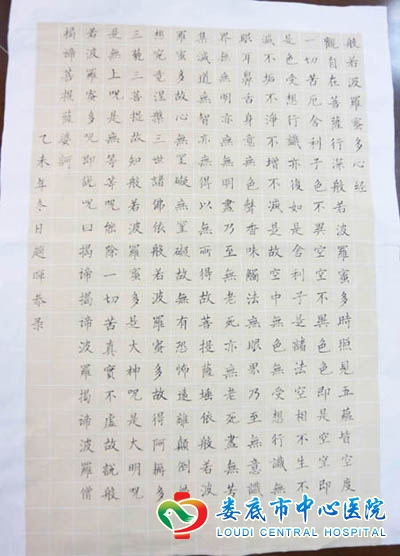 般若波羅蜜多心經
觀自在菩薩行深般若波羅蜜多時照見五蘊皆空度
一切苦厄舍利子色不異空空不異色色即是空空即
是色受想行識亦復如是舍利子是諸法空相不生不
滅不垢不淨不增不減是故空中無色無受想行識無
眼耳鼻舌身意無色聲香味觸法無眼界乃至無意識
界無無明亦無無明盡乃至無老死亦無老死盡無苦
集滅道無智亦無得以無所得故菩提薩埵依般若波
羅蜜多故心無罣礙無罣礙故無有恐怖遠離顛倒夢
想究竟涅槃三世諸佛依般若波羅蜜多故得阿耨多
三藐三菩提故知般若波羅蜜多是大神咒是大明咒
是無上咒是無等等咒能除一切苦真實不虛故說般
若波羅蜜多咒即說咒曰揭諦揭諦波羅揭諦波羅僧
揭諦菩提薩婆訶
乙未年冬日趙暉恭录
娄底市中心医院
LOUDI CENTRAL HOSPITAL